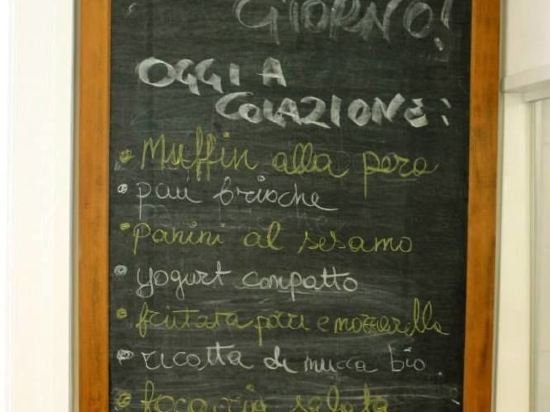 GIORNO!
OGGI A
COLAZIONE:
• Muffin alla pera
• pan brioche
• panini al sesamo
• yogurt compatto
• frittata pori e mozzarella
• ricotta di mucca bio.
• focaccia salata